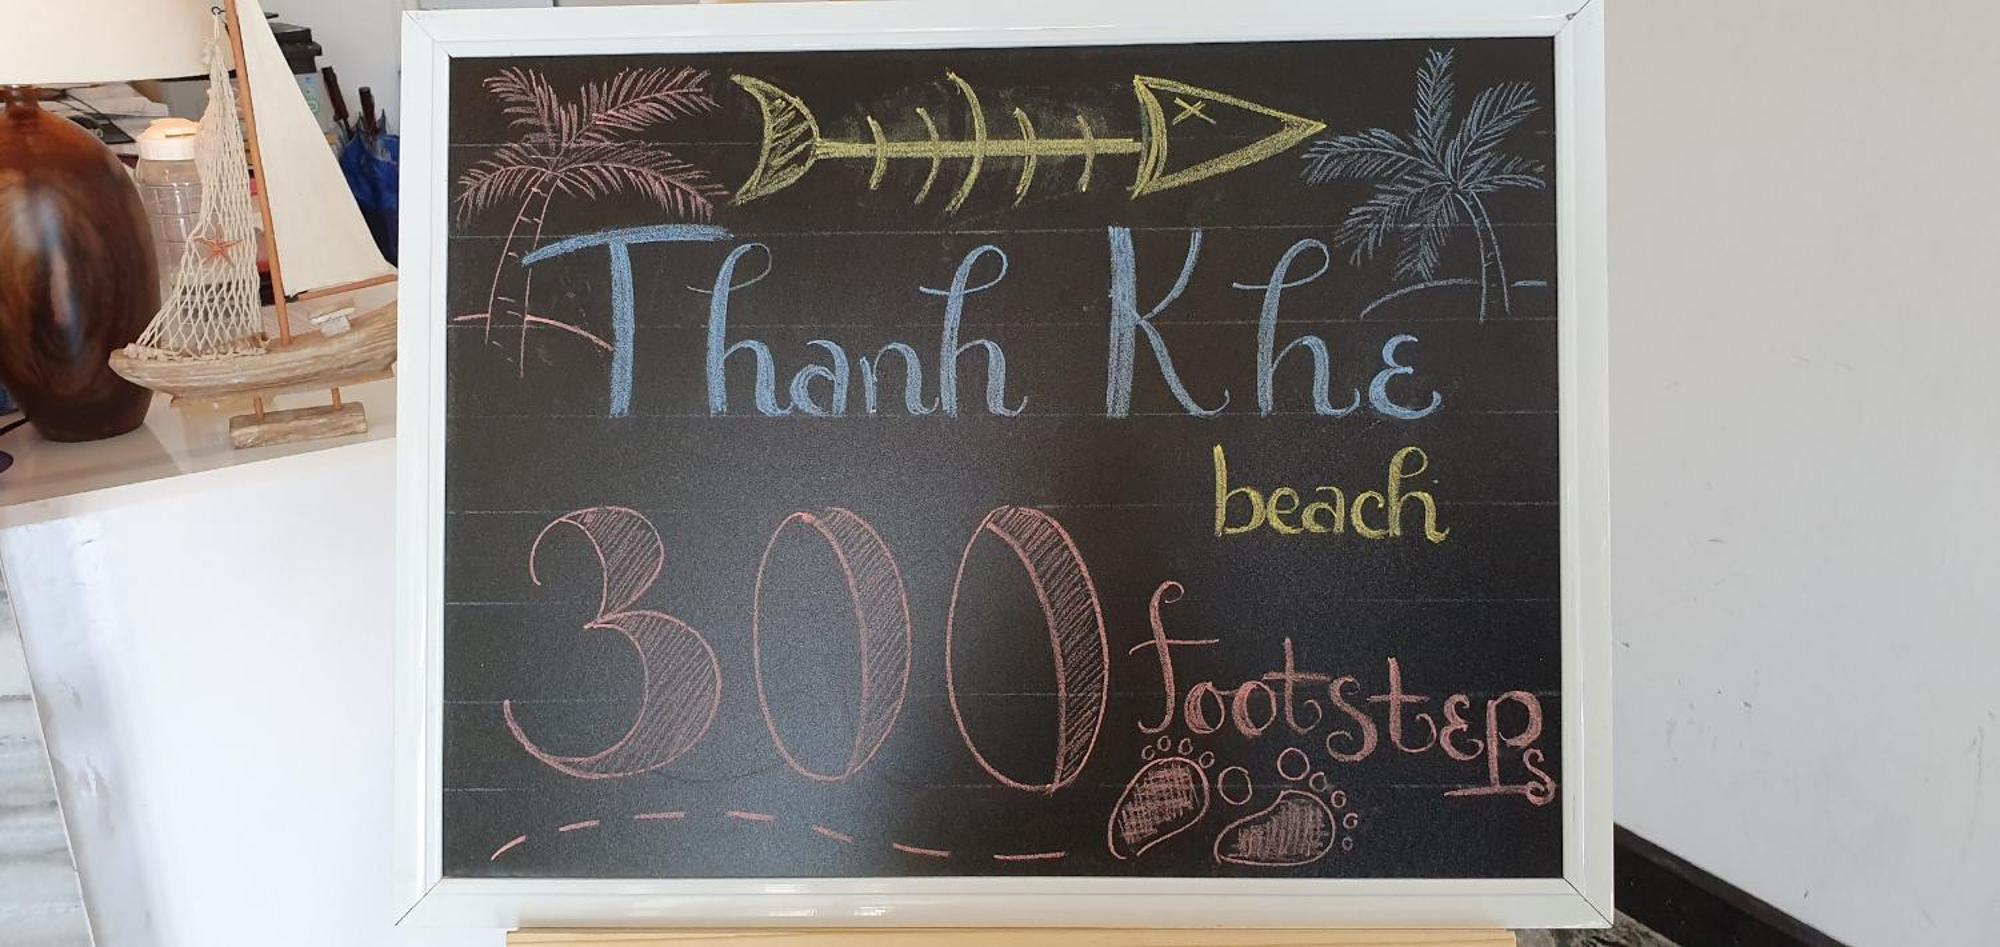 Thanh Khe
beach
300 footsteps